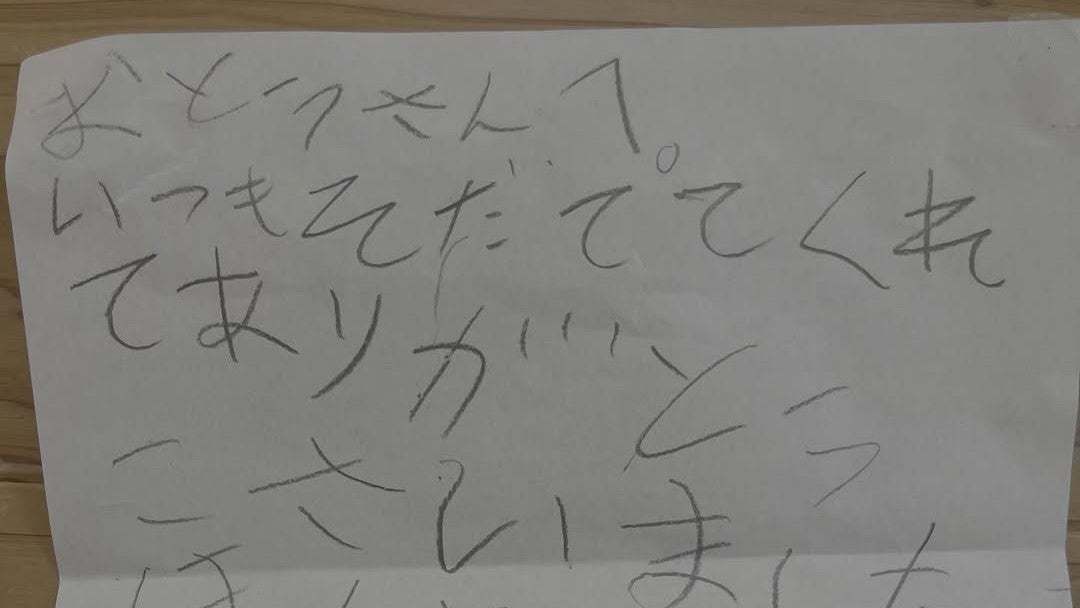 おとうさんへ。
いつもそだててくれ
てありがとう
こさいました